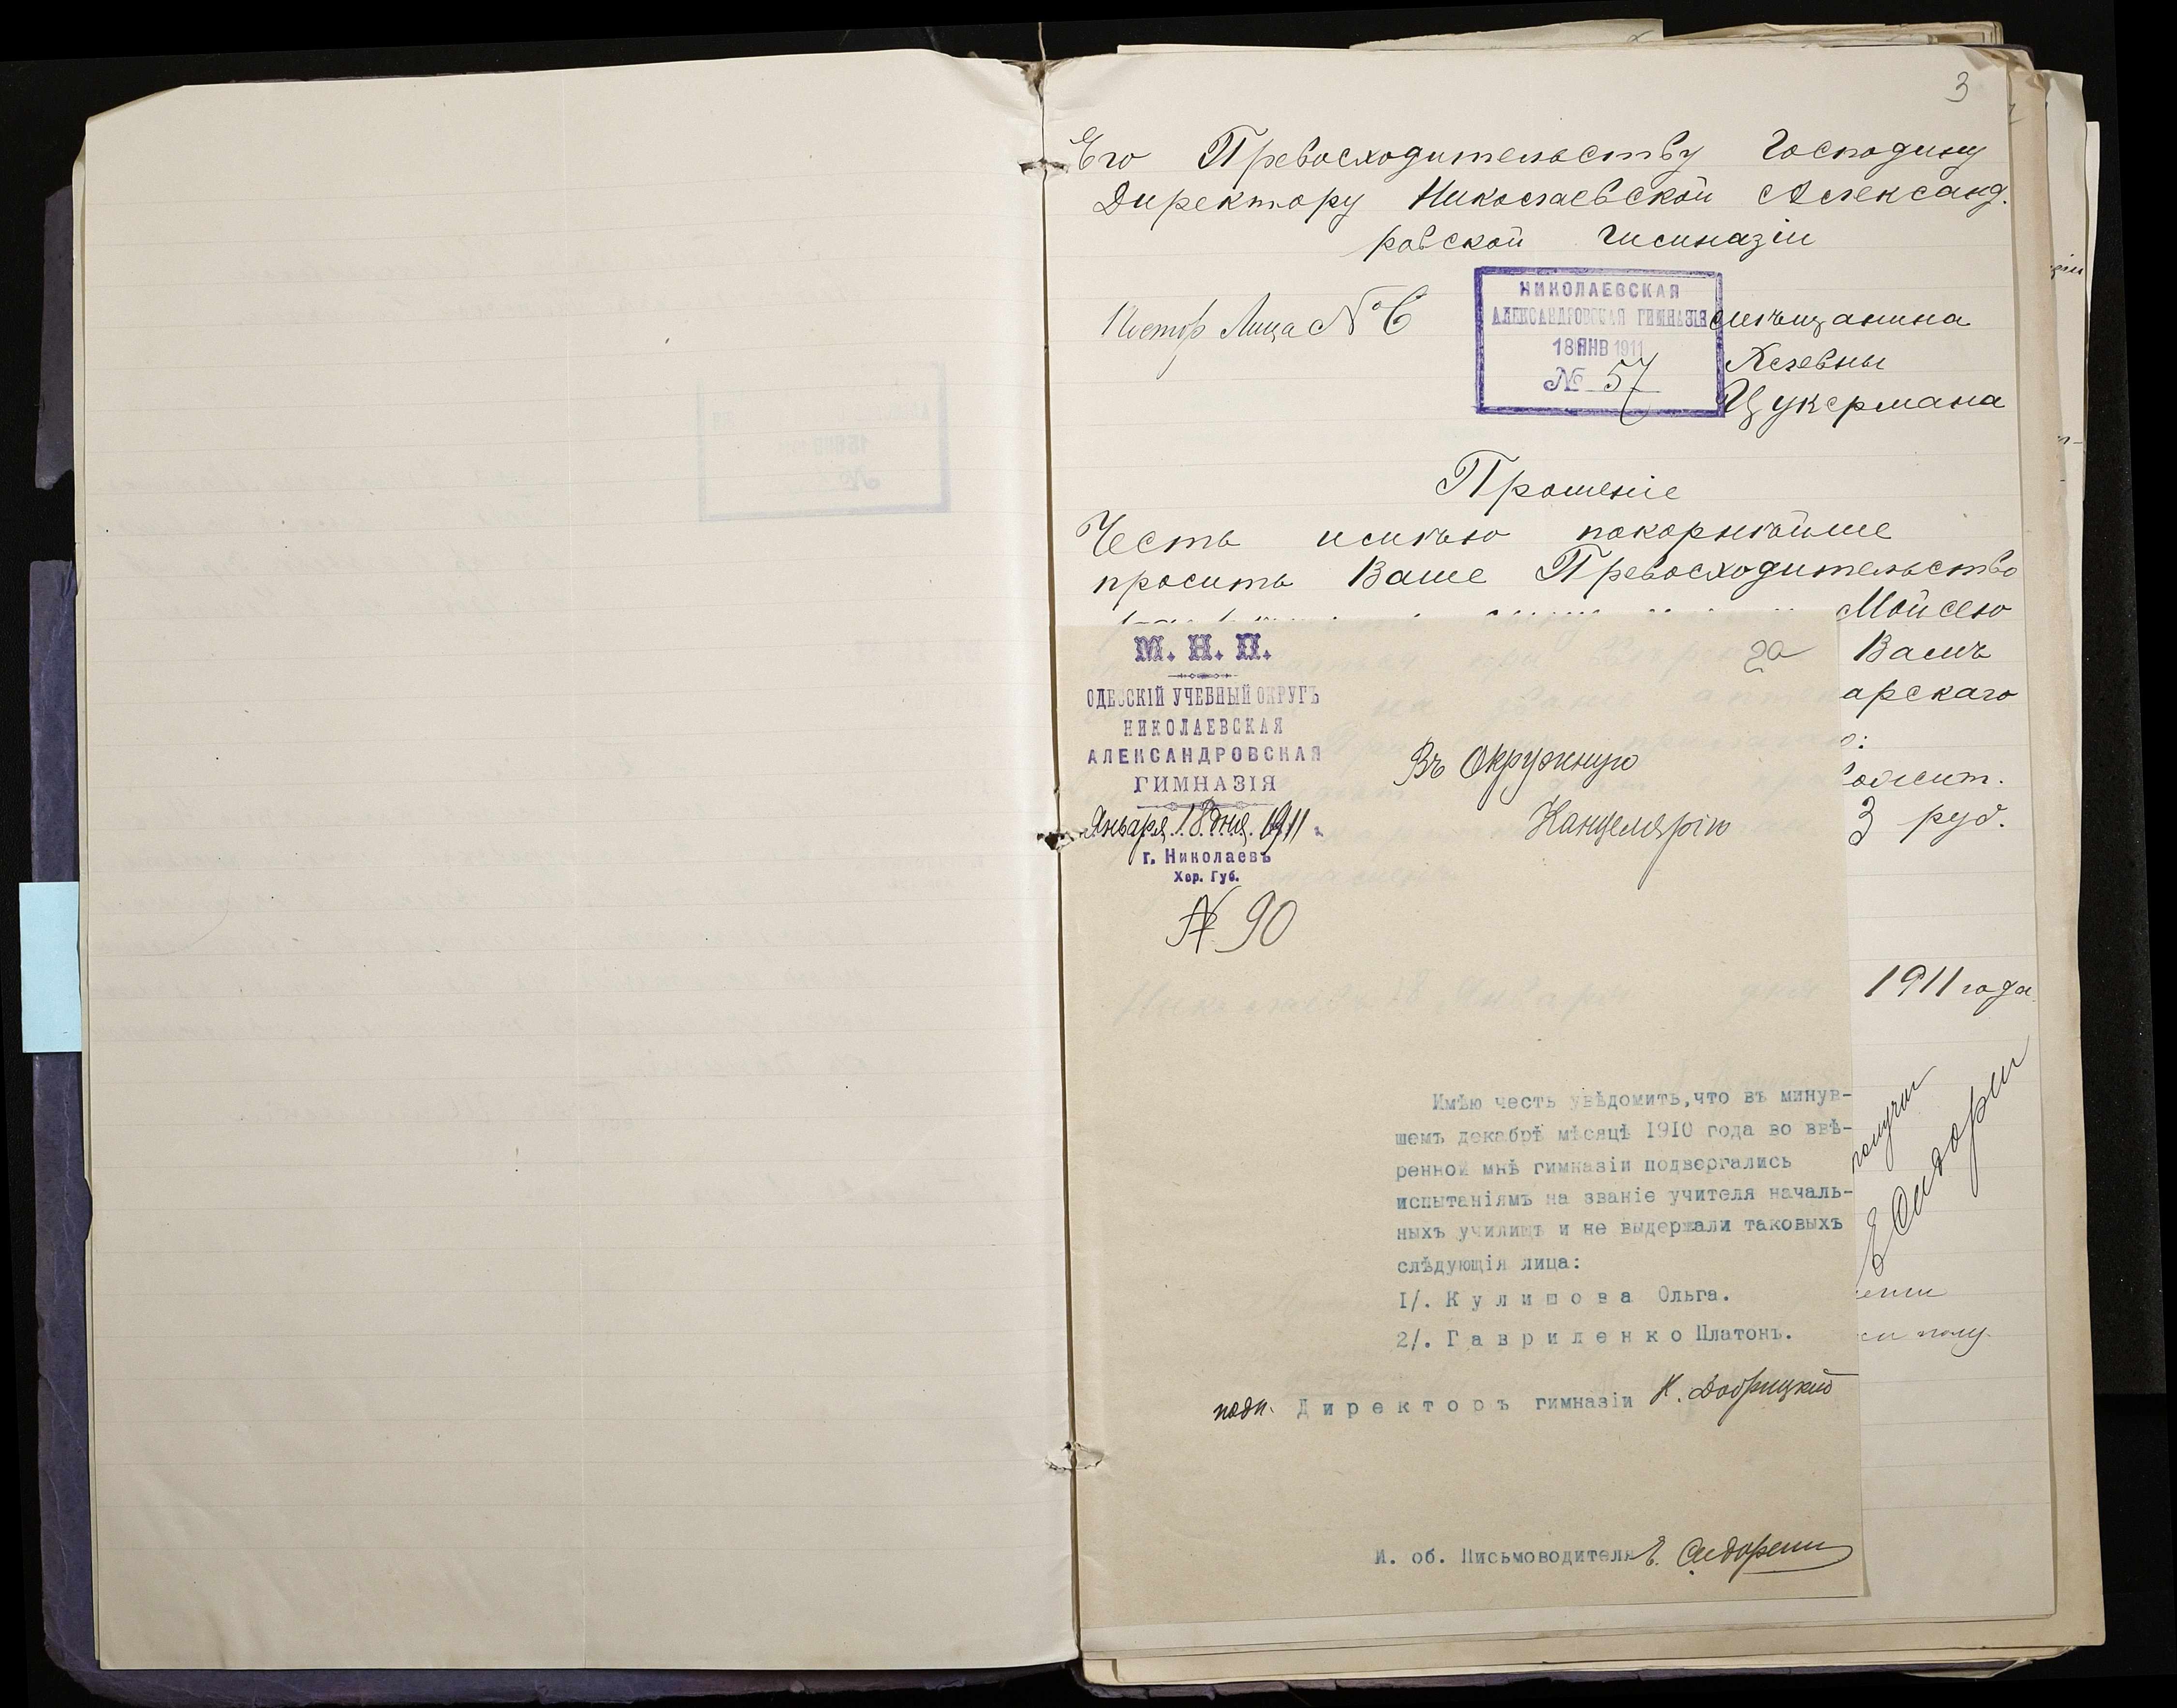 3
Его Превосходительству Господину
Директору Николаевской Александ.
ровской Гимназіи
НИКОЛАЕВСКАЯ
АЛЕКСАНДРОВСКАЯ ГИМНАЗІЯ
18 ЯНВ 1911
№ 57
Лица № 6
мѣщанина
Цукермана
Прошеніе
Честь имѣю покорнѣйше
просить Ваше Превосходительство
Мойсею
Вамъ
арскаго
о:
3 руб.
1911 года
получил
Е Сидорен
М. Н. П.
ОДЕССКІЙ УЧЕБНЫЙ ОКРУГЪ
НИКОЛАЕВСКАЯ
АЛЕКСАНДРОВСКАЯ
ГИМНАЗІЯ
Января 18 дня 1911 г.
г. Николаевъ
Хер. Губ.
№ 90
2а
Въ Окружную
Канцелярію
Имѣю честь увѣдомить,что въ минув-
шемъ декабрѣ мѣсяцѣ 1910 года во ввѣ-
ренной мнѣ гимназіи подвергались
испытаніямъ на званіе учителя началь-
ныхъ училищъ и не выдержали таковыхъ
слѣдующія лица:
1/. К у л и ш о в а Ольга.
2/. Г а в р и л е н к о Платонъ.
подп. Д и р е к т о р ъ гимназіи Н. Добрицкій
И. об. Письмоводителя Е. Сидорен